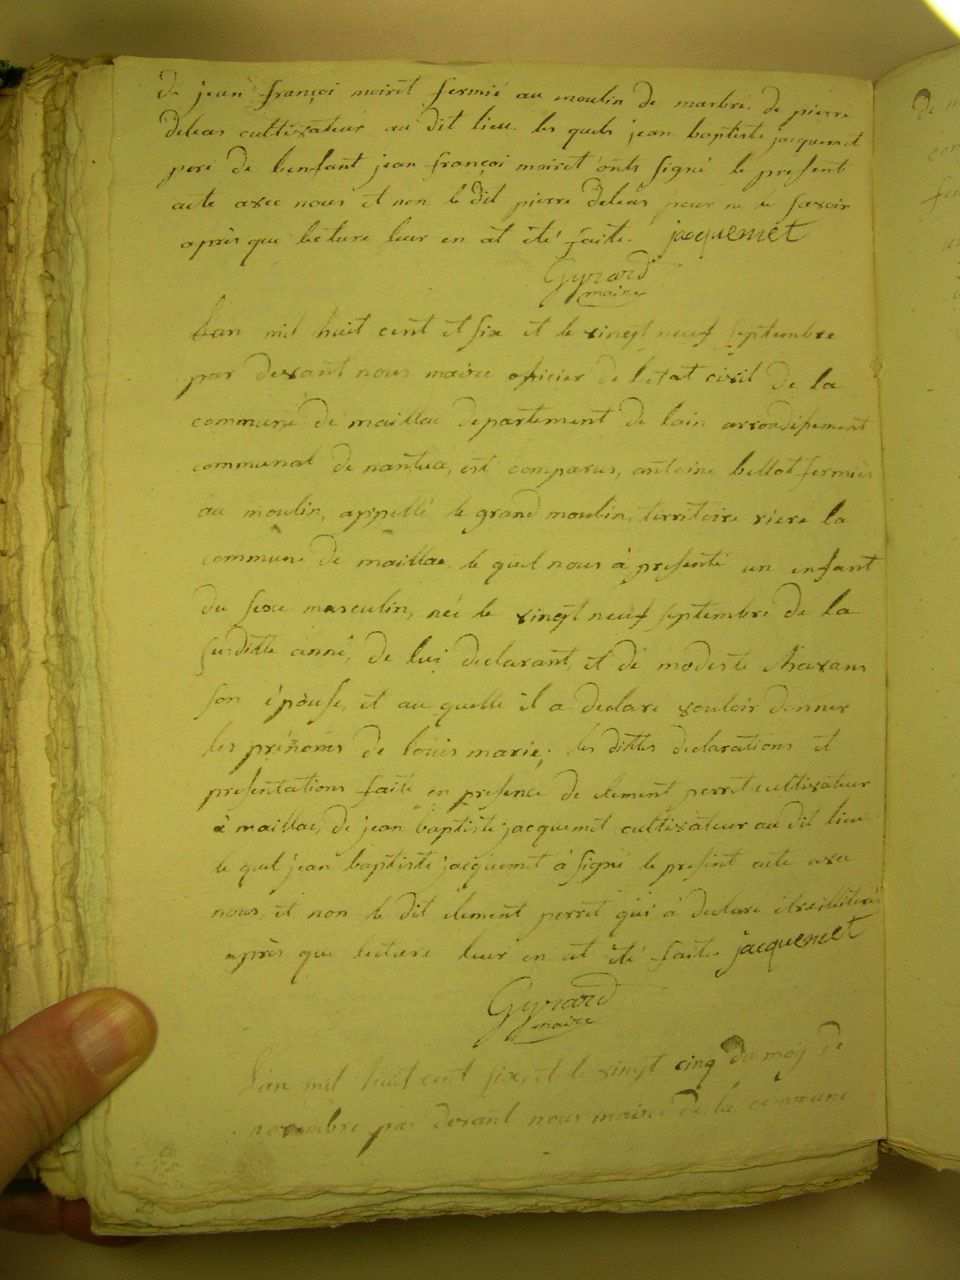 de jean françoi moiret fermié au moulin de marbre de pierre
deléas cultivateur au dit lieu les quels jean baptiste jacquemet
pere de lenfant jean françoi moiret onts signé le present
acte avec nous et non le dit pierre deléas pour ne le savoir
après que lecture leur en at été faite. jacquemet
Gyrard
maire
Lan mil huit cent et six et le vingt neuf septembre
par devant nous maire oficier de létat civil de la
commune de maillac departement de lain arrondissement
communal de nantua, est comparus, antoine bellot fermier
au moulin, appellé le grand moulin, territoire riere la
commune de maillac le quel nous à presenté un enfant
du sexe masculin, née le vingt neuf septembre de la
susditte anné, de lui declarant, et de modeste
son épouse, et au quelle il a declare vouloir donner
les prénoms de loüis marie; les dittes declarations et
presentations faite en presence de clement perret cultivateur
à maillac, de jean baptiste jacquemet cultivateur au dit lieu
le quel jean baptiste jacquemet à signé le present acte avec
nous et non le dit clement perret qui à declare
après que lecture leur en at été faite jacquemet
Gyrard
maire
Lan mil huit cent six et le vingt cinq du mois de
novembre par devant nous maire de la commune